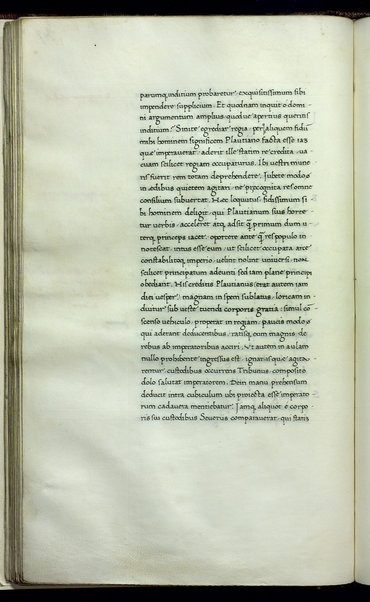 parumq; inditium probaretur. exquisitissimum sibi
impendere supplicium. Et quodnam inquit o domi-
ni argumentum amplius quodue apertius queritis
inditium? Sinite egrediar regia. per aliquem fidū
mihi hominem significem Plautiano facta esse iā
quę imperauerat. aderit ille statim re credita. ua-
cuam scilicet regiam occupaturus. Ibi uestri mune
ris fuerit rem totam deprehendere. Iubete modo
in ędibus quietem agitari. ne pręcognita res omne
consilium subuertat. Hęc loquutus. fidissimum si
bi hominem deligit. qui Plautianum suis horte-
tur uerbis. acceleret atq; adsit. q̄ primum dum u-
terq; princeps iacet. oportere ante q̄ res populo in
notescat. intus esse eum. ut scilicet occupata arce
constabilitoq; imperio. uelint nolint uniuersi. non
scilicet principatum adeunti sed iam plane principi
obediant. His creditis Plautianus (erat autem iam
diei uesper) magnam in spem sublatus. loricam in
duitur sub ueste tuendi corporis gratia. simul cō
scenso uehiculo. properat in regiam. paucis modo
qui aderant deducentibus. ratisq; eum magnis. de
rebus ab imperatoribus acciri. Vt autem in aulam
nullo prohibente ingressus est. ignarisque agita-
rentur custodibus occurrens Tribunus. composito
dolo salutat imperatorem. Dein manu prehensum
deducit intra cubiculum ubi proiecta esse imperato
rum cadauera mentiebatur. Iamq; aliquot e corpo-
ris sui custodibus Seuerus comparauerat. qui statī